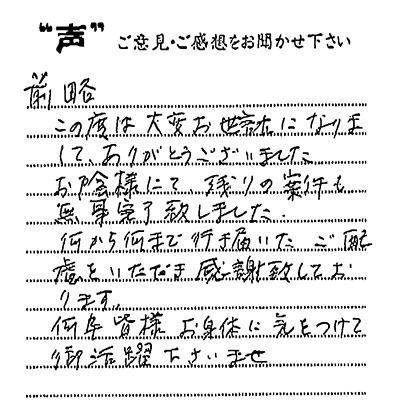 “声” ご意見・ご感想をお聞かせ下さい
前略
この度は大変お世話になりま
して、ありがとうございました
お陰様にて、残りの案件も
無事完了致しました.
何から何まで行き届いた ご配
慮をいただき感謝致してお
ります。
何卒皆様 お身体に気をつけて
御活躍下さいませ